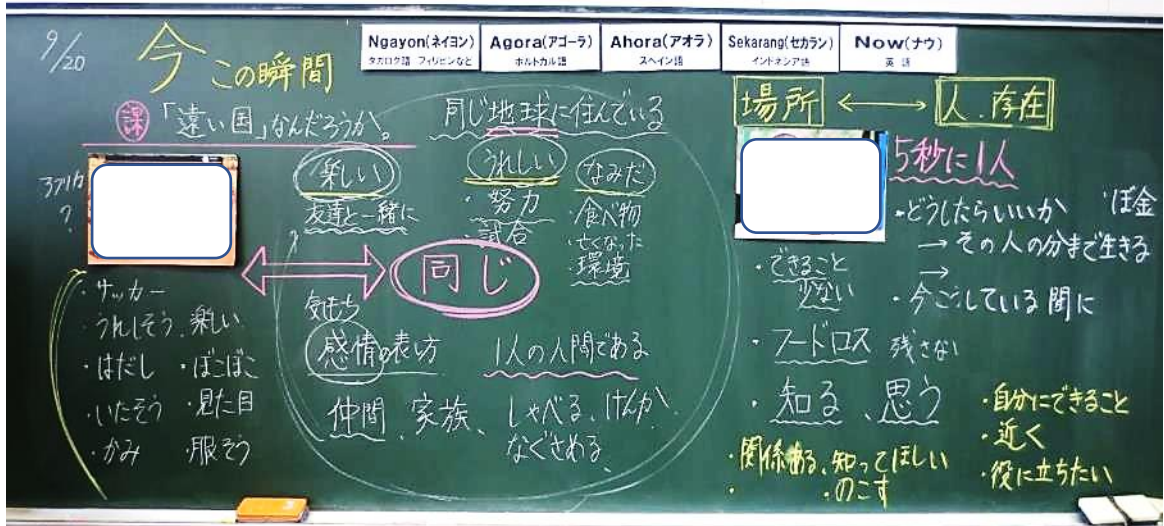 9/20
今 この瞬間
Ngayon(ネイヨン)
タガログ語 フィリピンなど
Agora(アゴーラ)
ポルトガル語
Ahora(アオラ)
スペイン語
Sekarang(セカラン)
インドネシア語
Now(ナウ)
英語
課 「遠い国」なんだろうか。
アフリカ
?
・サッカー
・うれしそう、楽しい
・はだし ・ぼこぼこ
・いたそう ・見た目
・かみ ・服そう
同じ地球に住んでいる
楽しい
友達と一緒に
うれしい
・努力
・試合
なみだ
・食べ物
・亡くなった
・環境
同じ
気もち
感情の表し方
1人の人間である
仲間、家族、しゃべる、けんか、
なぐさめる、
場所 ←→ 人、存在
5秒に1人
・どうしたらいいか ・ぼ金
→ その人の分まで生きる
→
・今こうしている間に
・できること
少ない
・フードロス 残さない
・知る、思う
・関係ある、知ってほしい
・ ・のこす
・自分にできること
・近く
・役に立ちたい